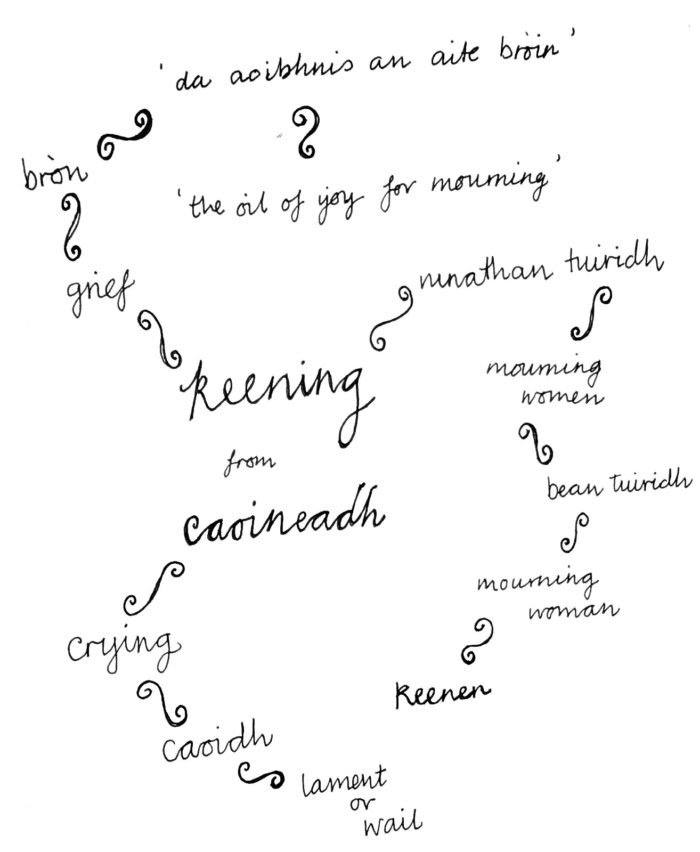 'da aoibhnis an aite bròin'
bròn
'the oil of joy for mourning'
grief
mnathan tuiridh
keening
mourning
women
from
bean tuiridh
caoineadh
mourning
woman
crying
keenen
caoidh
lament
or
wail